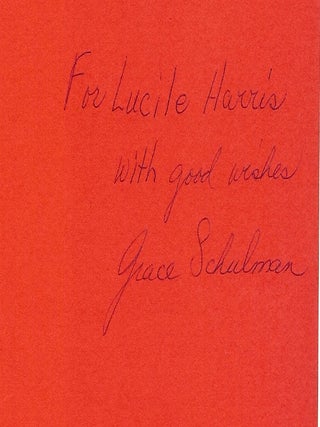 For Lucile Harris
with good wishes
Grace Schulman